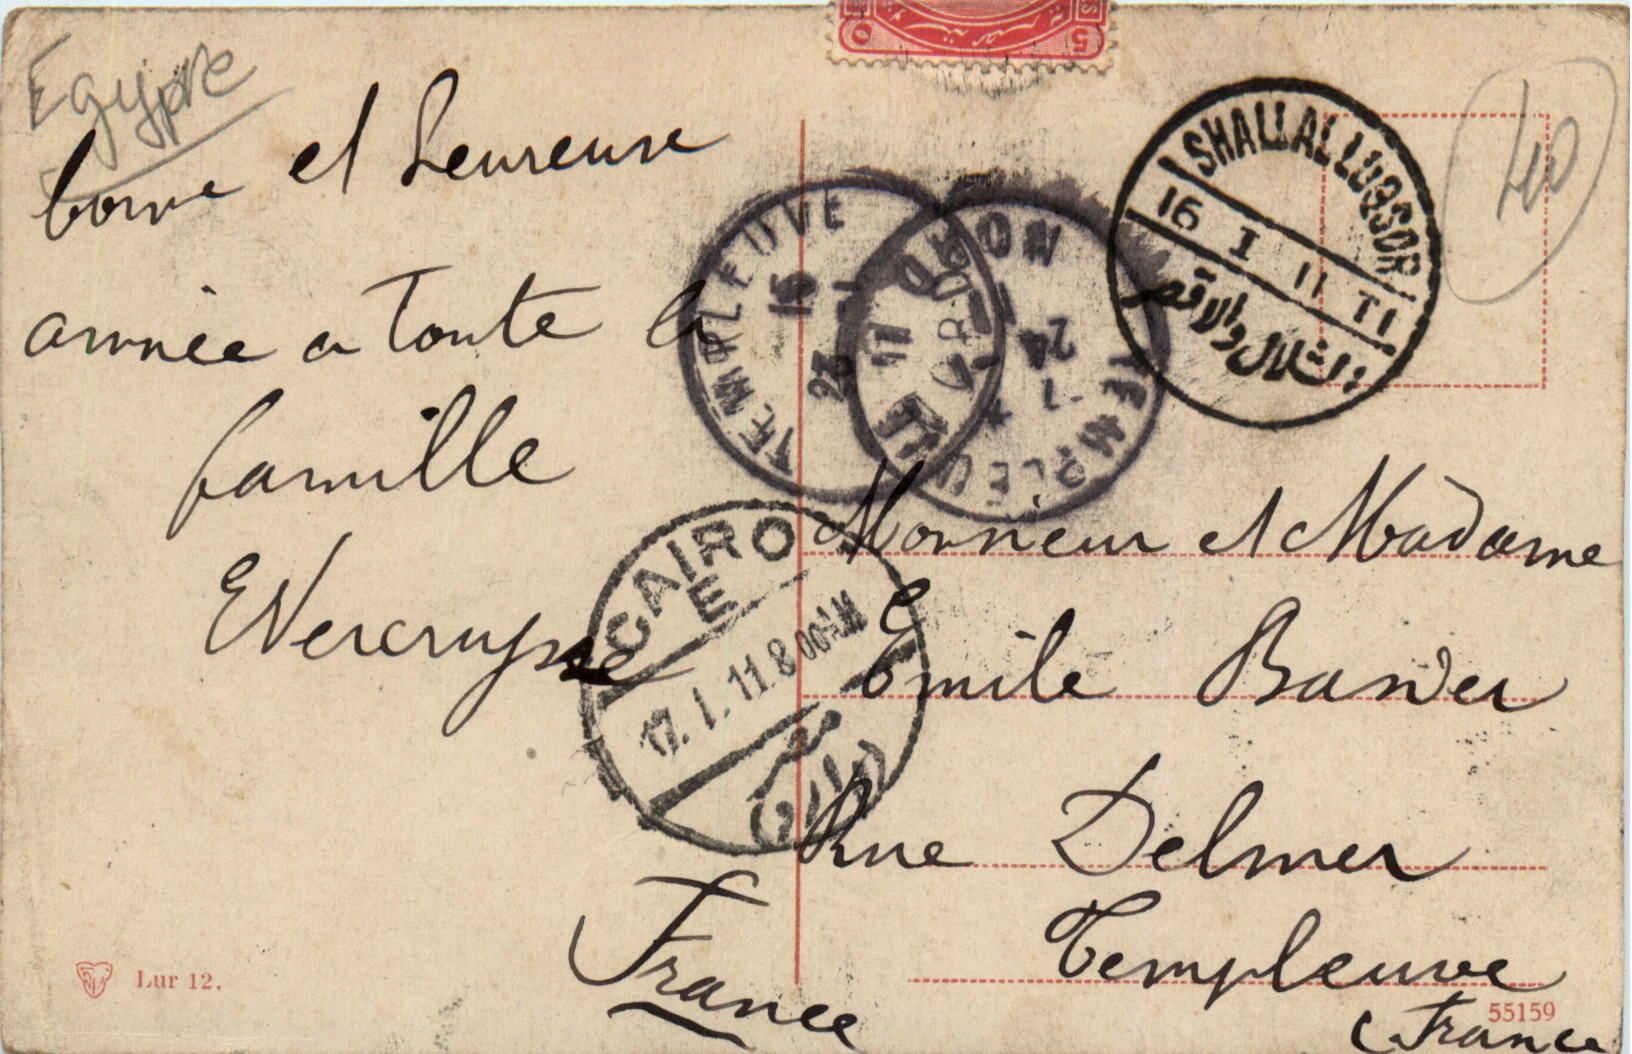 Egypte
40
bonne et heureuse
année a toute la
famille
EVercruysse
SHALLAL LUQSOR
16 I 11 T1
الشلال والاقصر
TEMPLEUVE
15
23
NORD
24
TEMPLEUVE
CAIRO
E
17.I.11.8 00-AM
Monsieur et Madame
Emile
Rue Delmer
Templeuve
France
(France
Lur 12.
55159
5